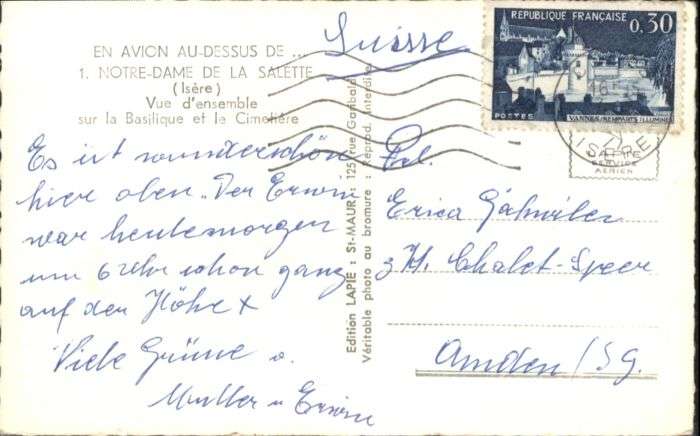 EN AVION AU-DESSUS DE ...
1. NOTRE-DAME DE LA SALETTE
(Isère)
Vue d'ensemble
sur la Basilique et le Cimetière
Suisse
RÉPUBLIQUE FRANÇAISE
0,30
POSTES
VANNES REMPARTS ILLUMINÉS
ISÈRE
Es ist wunderschön
hier oben. Der Erwin
war heute morgen
um 6 Uhr schon ganz
auf der Höhe x
Viele Grüsse v.
Muller u Erwin
Edition LAPIE : St-MAUR : 125, rue Garibaldi
Véritable photo au bromure : Reprod. interdite
Frl.
Erica
z H. Chalet-Speer
Amden / Sg.